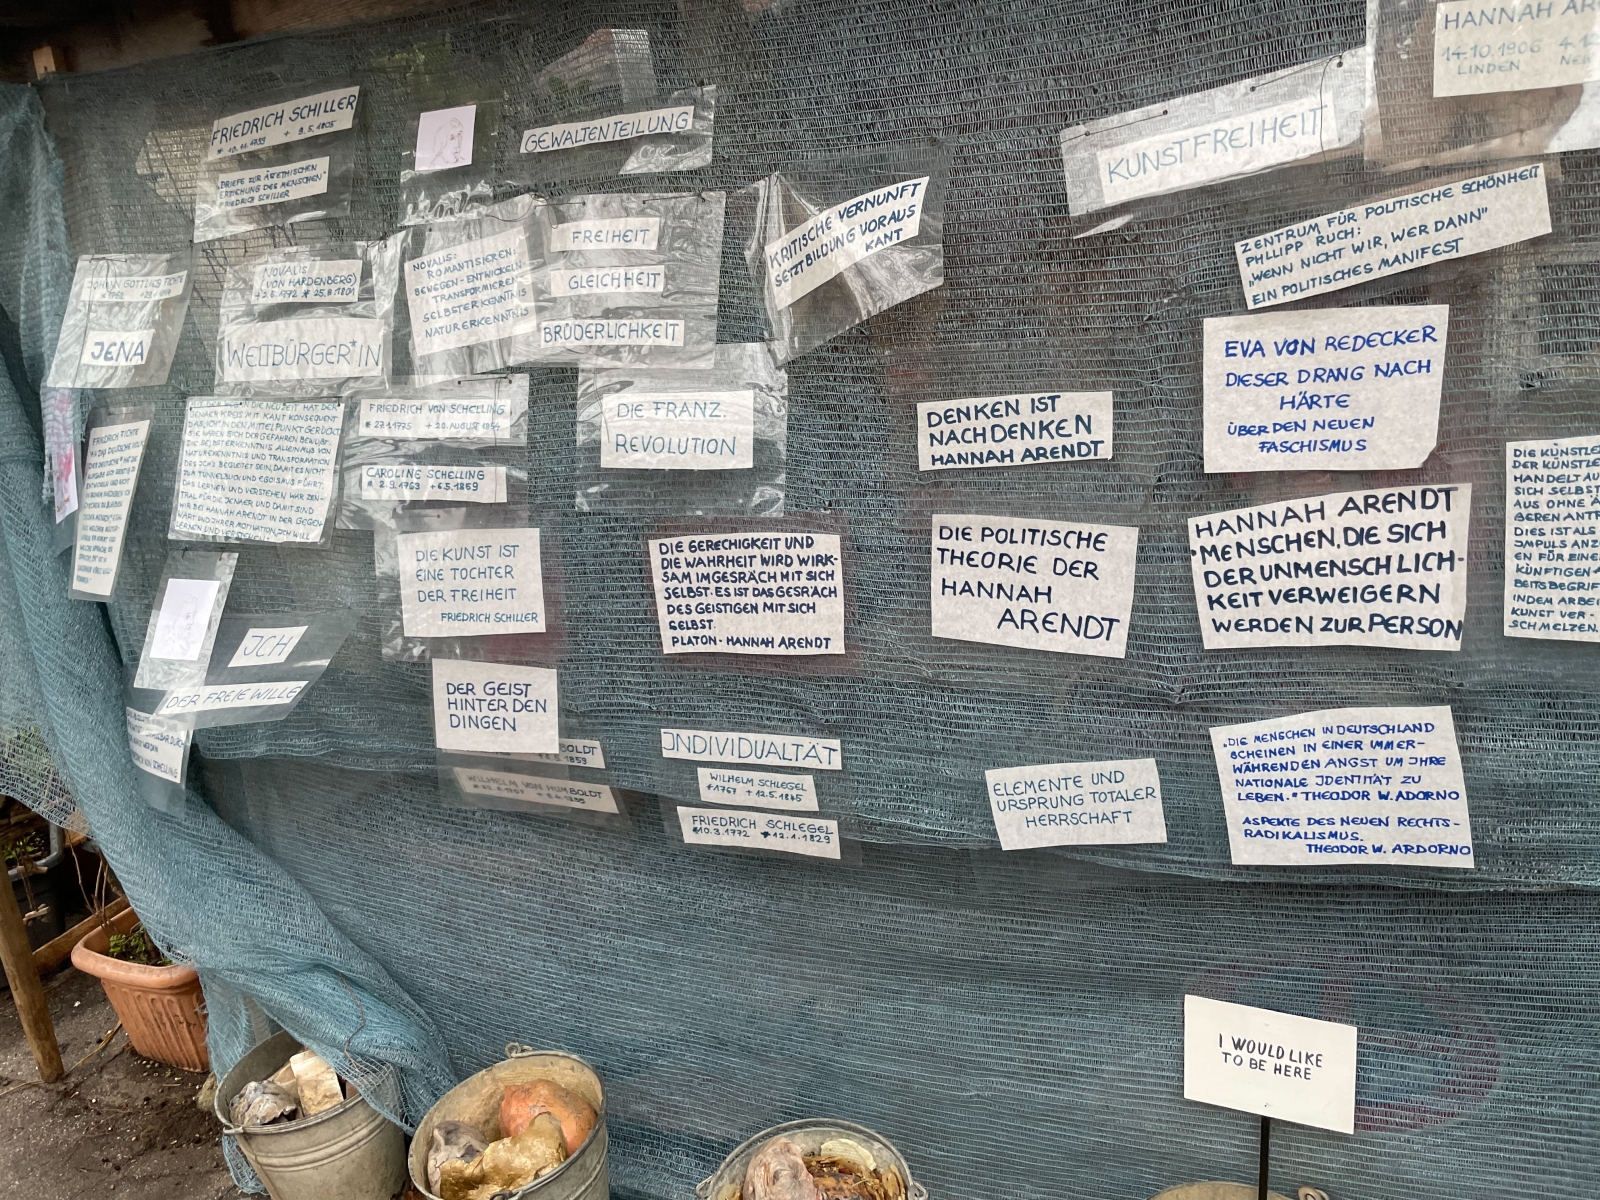 FRIEDRICH SCHILLER
* 10.11.1759 + 9.5.1805
"BRIEFE ZUR ÄSTETHISCHEN
ERZIEHUNG DES MENSCHEN"
FRIEDRICH SCHILLER
GEWALTENTEILUNG
KUNSTFREIHEIT
HANNAH AR
14.10.1906 4.12
LINDEN NEW
JOHANN GOTTLIEB FICHTE
JENA
NOVALIS
(VON HARDENBERG)
WELTBÜRGER*IN
NOVALIS:
ROMANTISIEREN:
BEWEGEN-ENTWICKELN-
TRANSFORMIEREN
SELBSTERKENNTNIS
NATURERKENNTNIS
FREIHEIT
GLEICHHEIT
BRÜDERLICHKEIT
KRITISCHE VERNUNFT
SETZT BILDUNG VORAUS
KANT
ZENTRUM FÜR POLITISCHE SCHÖNHEIT
PHLIPP RUCH:
"WENN NICHT WIR, WER DANN"
EIN POLITISCHES MANIFEST
EVA VON REDECKER
DIESER DRANG NACH
HÄRTE
ÜBER DEN NEUEN
FASCHISMUS
IN DIE NEUZEIT HAT DER
JENAER KREIS MIT KANT KONSEQUENT
DAS ICH IN DEN MITTELPUNKT GERÜCKT
SIE WAREN SICH DER GEFAHREN BEWUSST.
DIE SELBSTERKENNTNIS ALLEIN MUSS VON
NATURERKENNTNIS UND TRANSFORMATION
DES ICHS BEGLEITET SEIN, DAMIT ES NICHT
ZUM TUNNELBLICK UND EGOISMUS FÜHRT.
DAS LERNEN UND VERSTEHEN WAR ZEN-
TRAL FÜR DIE JENAER UND DAMIT SIND
WIR BEI HANNAH ARENDT IN DER GEGEN-
WART UND IHRER MOTIVATION, ICH WILL
LERNEN UND VERSTEHEN.
FRIEDRICH VON SCHELLING
* 27.1.1775 + 20. AUGUST 1854
CAROLINE SCHELLING
* 2.9.1763 +
DIE FRANZ.
REVOLUTION
DENKEN IST
NACHDENKEN
HANNAH ARENDT
DIE KÜNSTLE
DER KÜNSTLE
HANDELT AU
SICH SELBST
AUS OHNE Ä
BEREN ANTR
DIES IST ALS
IMPULS ANZ
EN FÜR EINE
KÜNFTIGEN A
BEITSBEGRIF
INDEM ARBEI
KUNST VER-
SCHMELZEN.
FRIEDRICH FICHTE
DIE KUNST IST
EINE TOCHTER
DER FREIHEIT
FRIEDRICH SCHILLER
DIE GERECHIGKEIT UND
DIE WAHRHEIT WIRD WIRK-
SAM IM GESRÄCH MIT SICH
SELBST. ES IST DAS GESRÄCH
DES GEISTIGEN MIT SICH
SELBST.
PLATON - HANNAH ARENDT
DIE POLITISCHE
THEORIE DER
HANNAH
ARENDT
HANNAH ARENDT
"MENSCHEN, DIE SICH
DER UNMENSCHLICH-
KEIT VERWEIGERN
WERDEN ZUR PERSON
ICH
DER FREIE WILLE
DER GEIST
HINTER DEN
DINGEN
BOLDT
1859
WILHELM VON HUMBOLDT
INDIVIDUALTÄT
WILHELM SCHLEGEL
*1767 + 12.5.1845
FRIEDRICH SCHLEGEL
*10.3.1772 +12.1.1829
ELEMENTE UND
URSPRUNG TOTALER
HERRSCHAFT
"DIE MENSCHEN IN DEUTSCHLAND
SCHEINEN IN EINER IMMER-
WÄHRENDEN ANGST UM IHRE
NATIONALE IDENTITÄT ZU
LEBEN." THEODOR W. ADORNO
ASPEKTE DES NEUEN RECHTS-
RADIKALISMUS.
THEODOR W. ARDORNO
I WOULD LIKE
TO BE HERE